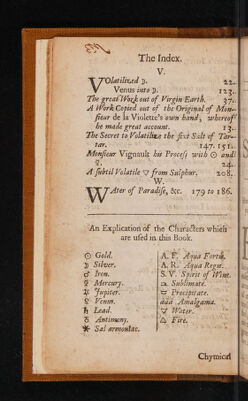 The Index.
V.
VOlatilized ☽. 22.
Venus into ☽. 123.
The great Work out of Virgin Earth. 37.
A Work Copied out of the Original of Mon-
sieur de la Violette's own hand, whereof
he made great account. 13.
The Secret to Volatilize the fixt Salt of Tar-
tar. 147. 151.
Monsieur Vignault his Process with ☉ and
☿. 24.
A subtil Volatile 🜄 from Sulphur. 208.
W.
WAter of Paradise, &c. 179 to 186.
An Explication of the Characters which
are used in this Book.
☉ Gold.
☽ Silver.
♂ Iron.
☿ Mercury.
♃ Jupiter.
♀ Venus.
♄ Lead.
♁ Antimony.
✱ Sal armoniac.
A. F. Aqua Fortis.
A. R. Aqua Regis.
S. V. Spirit of Wine.
Sublimate.
Precipitate.
aaa Amalgama.
🜄 Water.
🜂 Fire.
Chymical